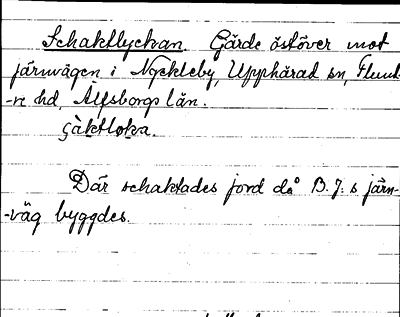 Schaktlyckan. Gärde österöver mot
järnvägen i Nyckleby, Upphärad sn, Flund-
-re hd, Älfsborgs län.
Där schaktades jord då B.J:s järn-
-väg byggdes.